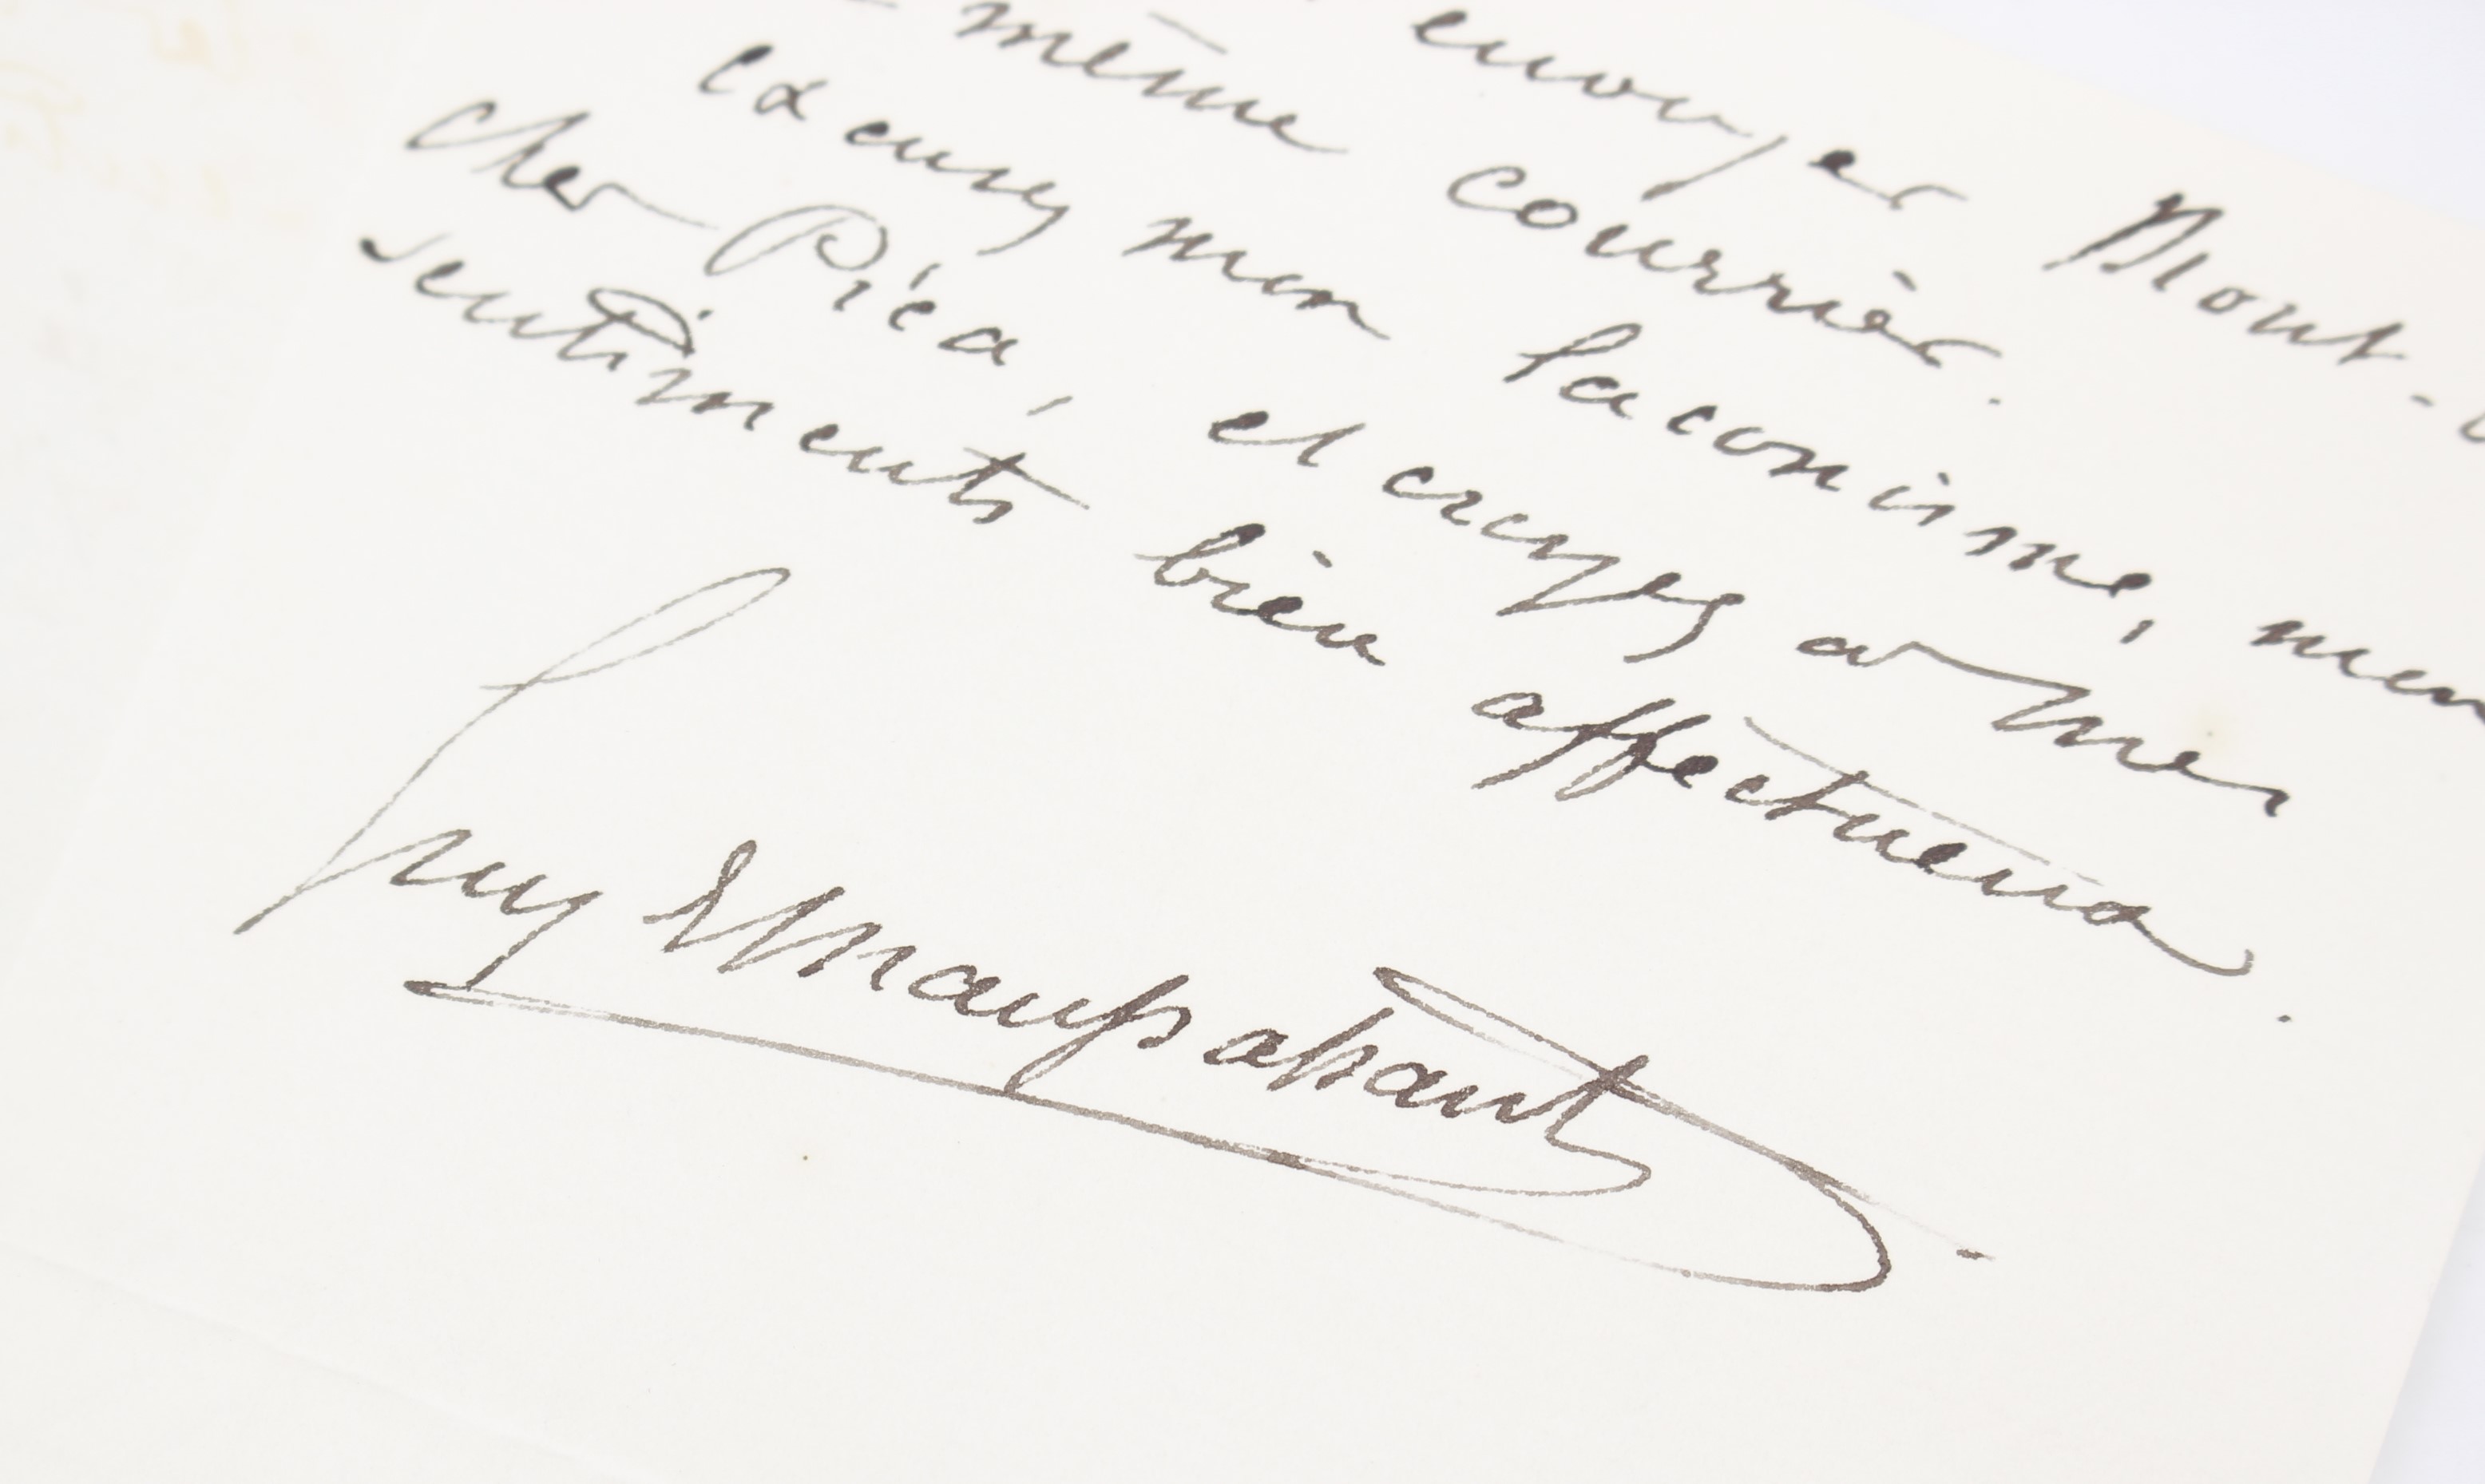 envoyer Mont-
même courrier.
Excusez mon laconisme, mon
cher Pica, et croyez à mes
sentiments bien affectueux.
Guy de Maupassant